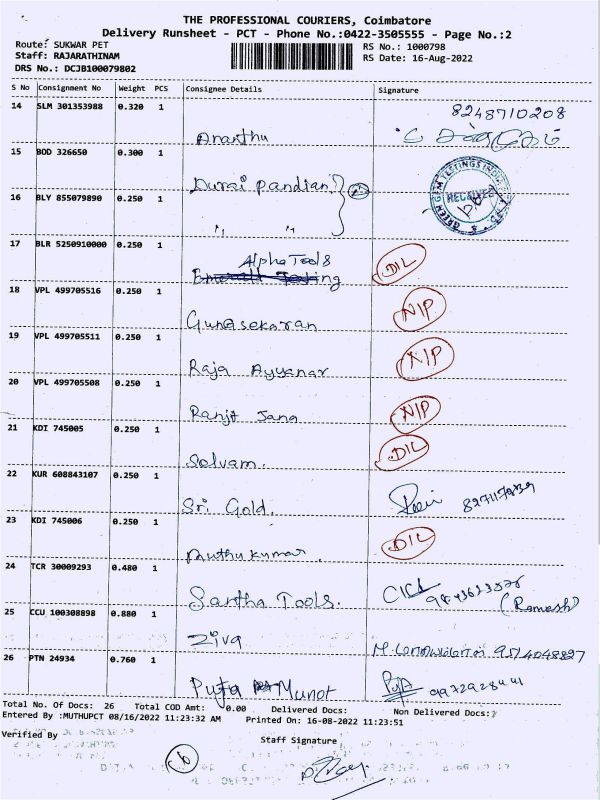 THE PROFESSIONAL COURIERS, Coimbatore
Delivery Runsheet - PCT - Phone No.:0422-3505555 - Page No.:2
Route: SUKWAR PET
Staff: RAJARATHINAM
DRS No.: DCJB100079802
RS No.: 1000798
RS Date: 16-Aug-2022
S No Consignment No Weight PCS Consignee Details Signature
14 SLM 301353988 0.320 1 8248710208
Ananthu
15 BOD 326650 0.300 1
Durai Pandian
RECEIVED
16 BLY 855079890 0.250 1
" "
17 BLR 5250910000 0.250 1
Alpha Tools DIL
18 VPL 499705516 0.250 1
Gunasekaran N/P
19 VPL 499705511 0.250 1
Raja Ayyanar N/P
20 VPL 499705508 0.250 1
Ranjit Jana N/P
21 KDI 745005 0.250 1
Selvam. DIL
22 KUR 608843107 0.250 1
Sri Gold.
23 KDI 745006 0.250 1
Muthukumar. DIL
24 TCR 30009293 0.480 1
Sastha Tools. (Ramesh)
25 CCU 100308898 0.880 1
Ziva 9574048827
26 PTN 24934 0.760 1
Puja Munot
Total No. Of Docs: 26 Total COD Amt: 0.00 Delivered Docs: Non Delivered Docs:
Entered By :MUTHUPCT 08/16/2022 11:23:32 AM Printed On: 16-08-2022 11:23:51
Verified By
Staff Signature